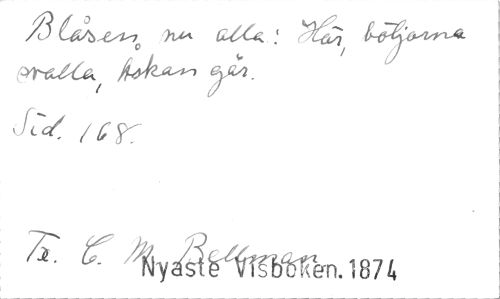 Blåsen nu alla: Hår, böljorna
svalla, Åskan går.
Sid. 168.
Tr. C. M. Bellman
Nyaste Visboken. 1874